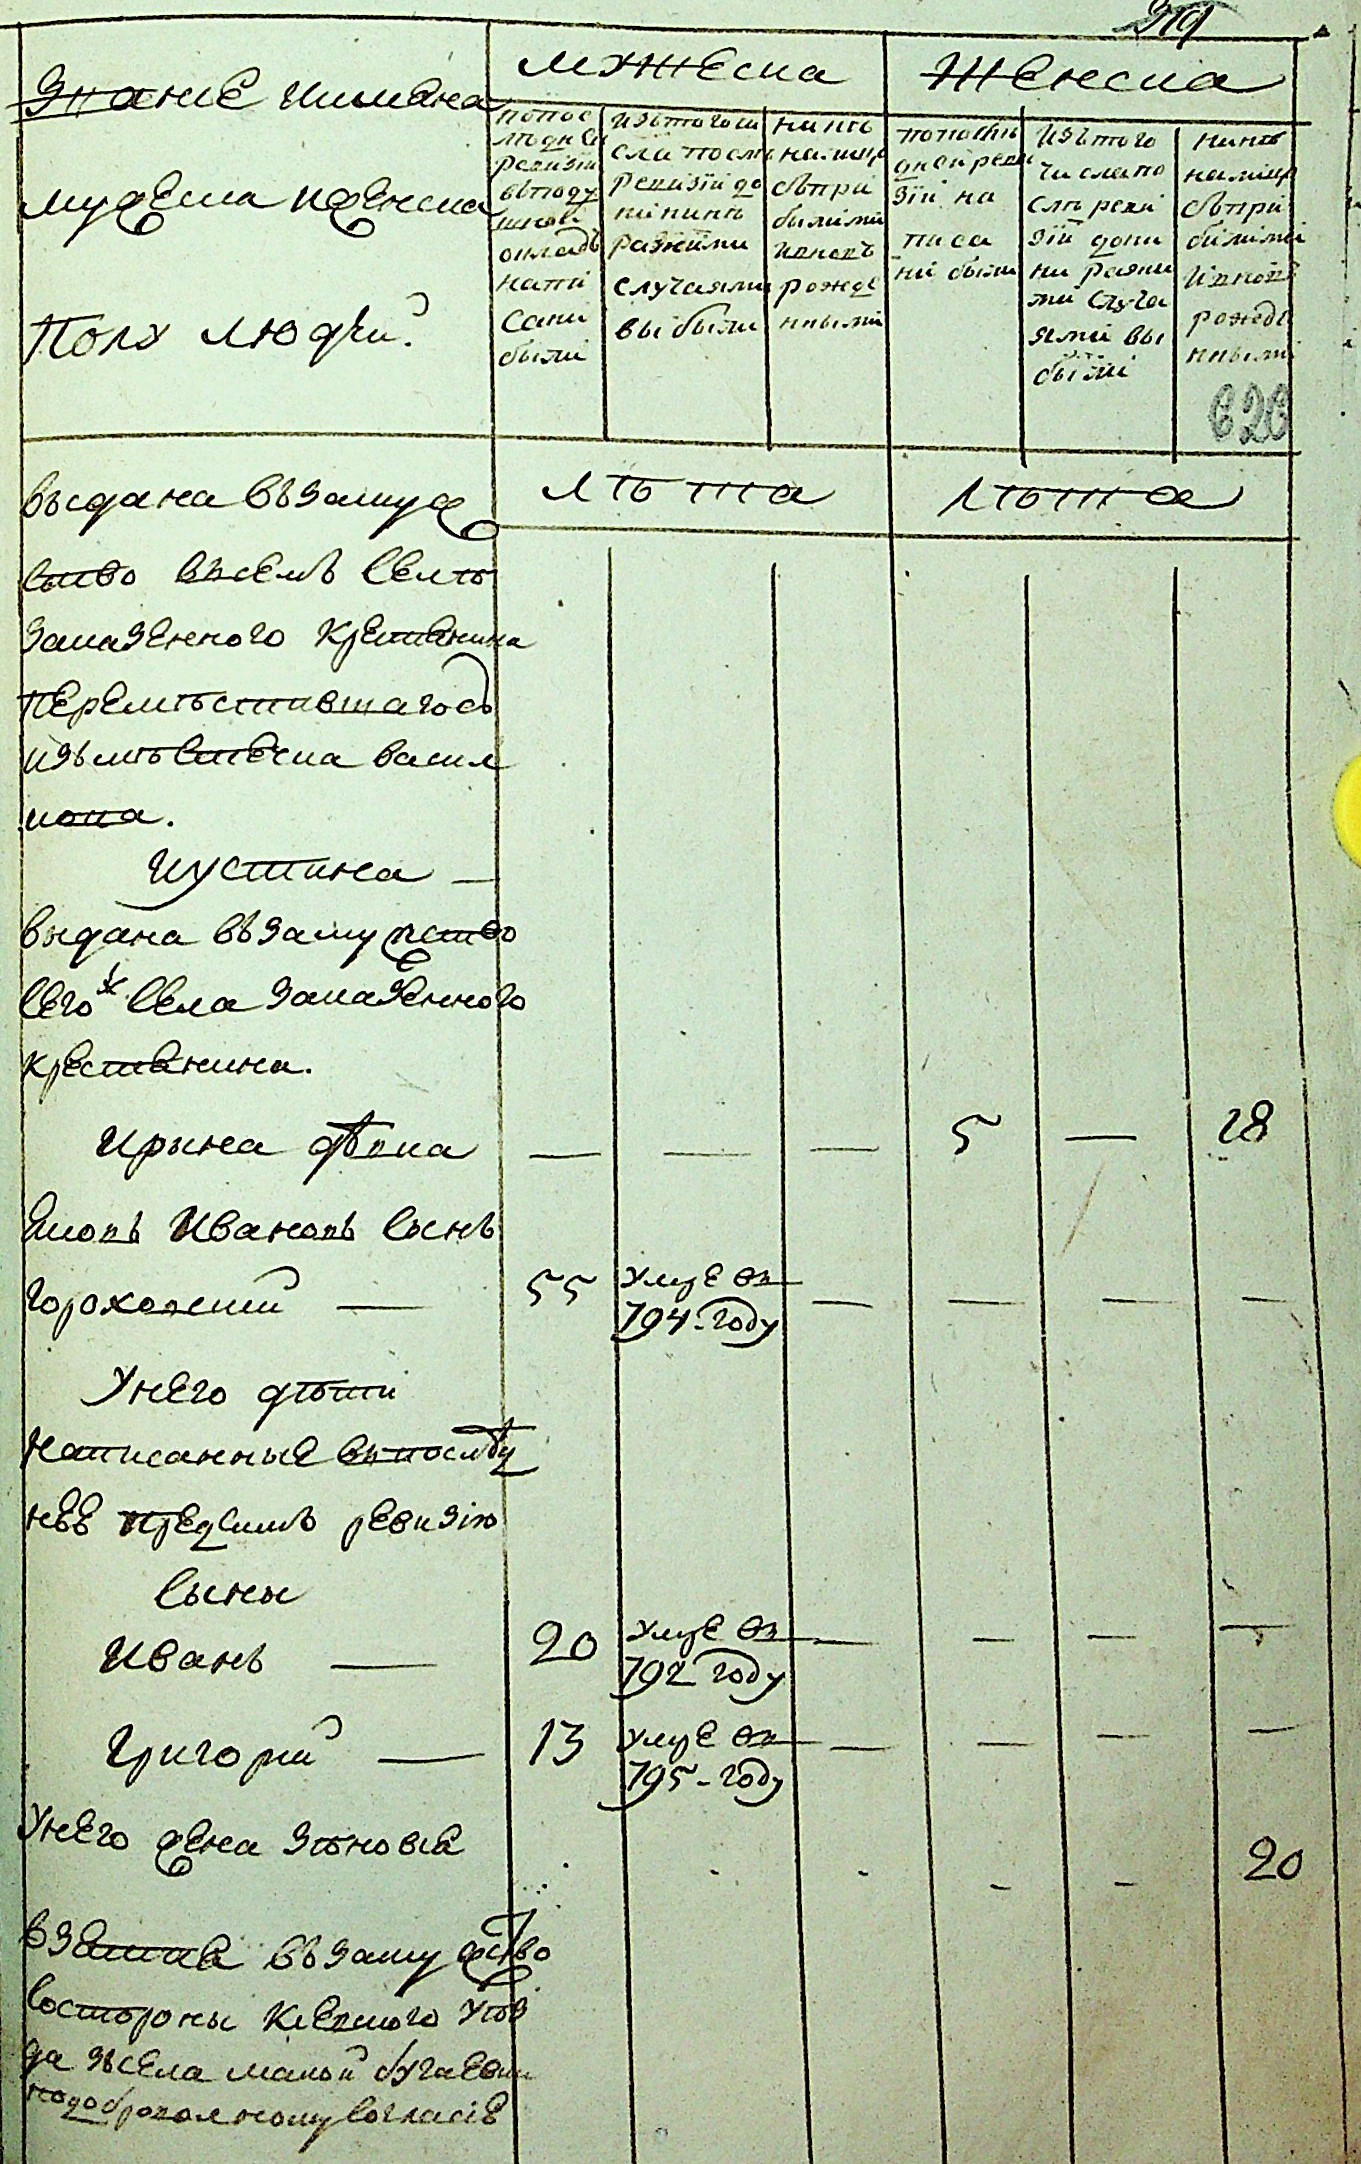 319
Званіе иимена
мужеска иженска
Полу людей.
Мужеска
Женска
попос
ледней
ревизіи
вподу
шної
окладъ
напи
сани
были
изътогочи
сла посль
ревизіи до
нинь
разними
случаями
выбыли
нинь
налице
съпри
былими
ивновъ
рожде
нными
попослъ
дней реви
зіи на
писа
ни были
изътого
числапо
слъ реви
зіи дони
ни разни
ми случа
ями вы
были
нинь
налице
съпри
билими
ивновъ
рожде
нными
лѣта
лѣта
выдана възамуж
ство всемъ селъ
заказенного крестянина
перемѣстившагось
изъмѣстечка васил
кова.
Иустина —
выдана възамужство
сегож села заказенного
крестянина.
Ирина дѣвка — — — 5 — 28
Яковъ Ивановъ сынъ
гороховский — 55 умре въ 794-году — — — —
Унего дѣти
написанные впослѣд
нее предсимъ ревизію
сыны
Иванъ — 20 умре въ 792 году — — — —
Григорий — 13 умре въ 795-году — — — —
Унего жена Зѣновіа 20
взятая възамужство
состороны Кіевского Уѣз
да зсела малой бугаевки
подобровольному согласіе